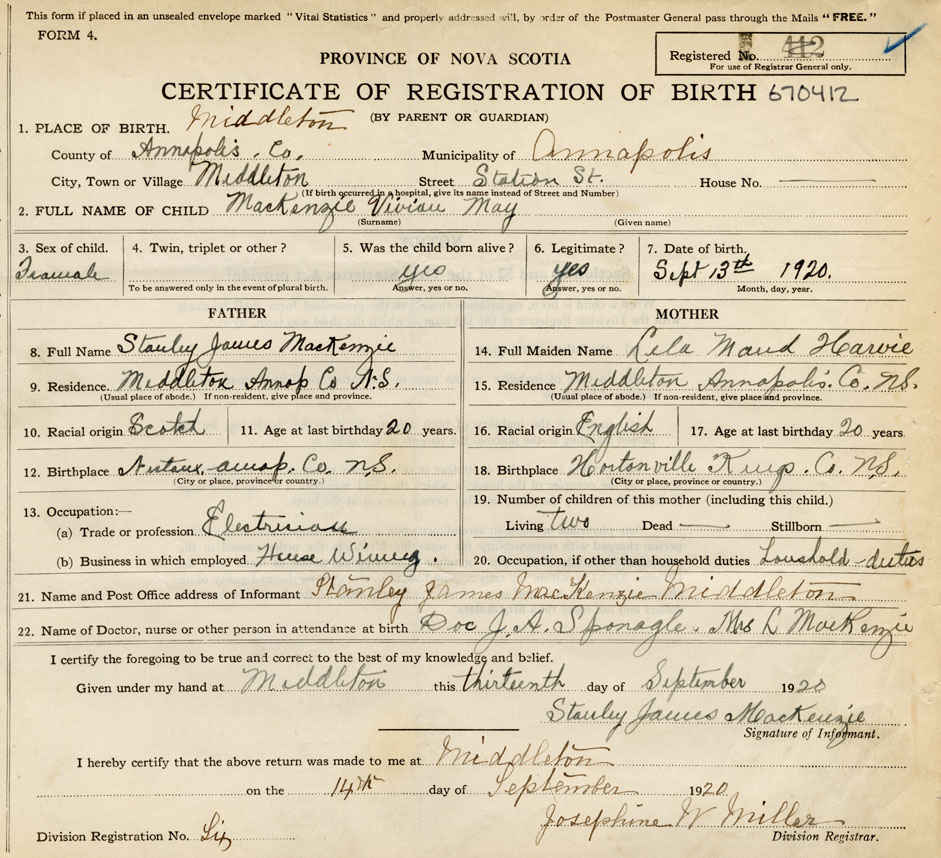 This form if placed in an unsealed envelope marked "Vital Statistics" and properly addressed will, by order of the Postmaster General pass through the Mails "FREE."
FORM 4.
Registered No. 412
For use of Registrar General only.
PROVINCE OF NOVA SCOTIA
CERTIFICATE OF REGISTRATION OF BIRTH 670412
(BY PARENT OR GUARDIAN)
1. PLACE OF BIRTH. Middleton
County of Annapolis. Co. Municipality of Annapolis
City, Town or Village Middleton Street Station St. House No.
(If birth occurred in a hospital, give its name instead of Street and Number)
2. FULL NAME OF CHILD MacKenzie Vivian May
(Surname) (Given name)
3. Sex of child. 4. Twin, triplet or other? 5. Was the child born alive? 6. Legitimate? 7. Date of birth.
Framale yes yes Sept 13th 1920.
To be answered only in the event of plural birth. Answer, yes or no. Answer, yes or no. Month, day, year.
FATHER MOTHER
8. Full Name Stanley James MacKenzie 14. Full Maiden Name Lela Maud Harvie
9. Residence. Middleton Annap Co N.S. 15. Residence Middleton Annapolis. Co. N.S.
(Usual place of abode.) If non-resident, give place and province. (Usual place of abode.) If non-resident, give place and province.
10. Racial origin Scotch 11. Age at last birthday 20 years. 16. Racial origin English 17. Age at last birthday 20 years
12. Birthplace Co. N.S. 18. Birthplace Hortonville Kings. Co. N.S.
(City or place, province or country.) (City or place, province or country.)
13. Occupation:— 19. Number of children of this mother (including this child.)
(a) Trade or profession Electrician Living two Dead — Stillborn —
(b) Business in which employed House Wiring. 20. Occupation, if other than household duties houshold-duties
21. Name and Post Office address of Informant Stanley James MacKenzie Middleton
22. Name of Doctor, nurse or other person in attendance at birth Doc J. A. Sponagle. Mrs L MacKenzie
I certify the foregoing to be true and correct to the best of my knowledge and belief.
Given under my hand at Middleton this thirteenth day of September 1920
Stanley James MacKenzie
Signature of Informant.
I hereby certify that the above return was made to me at Middleton
on the 14th day of September 1920
Josephine W Miller
Division Registrar.
Division Registration No. Six